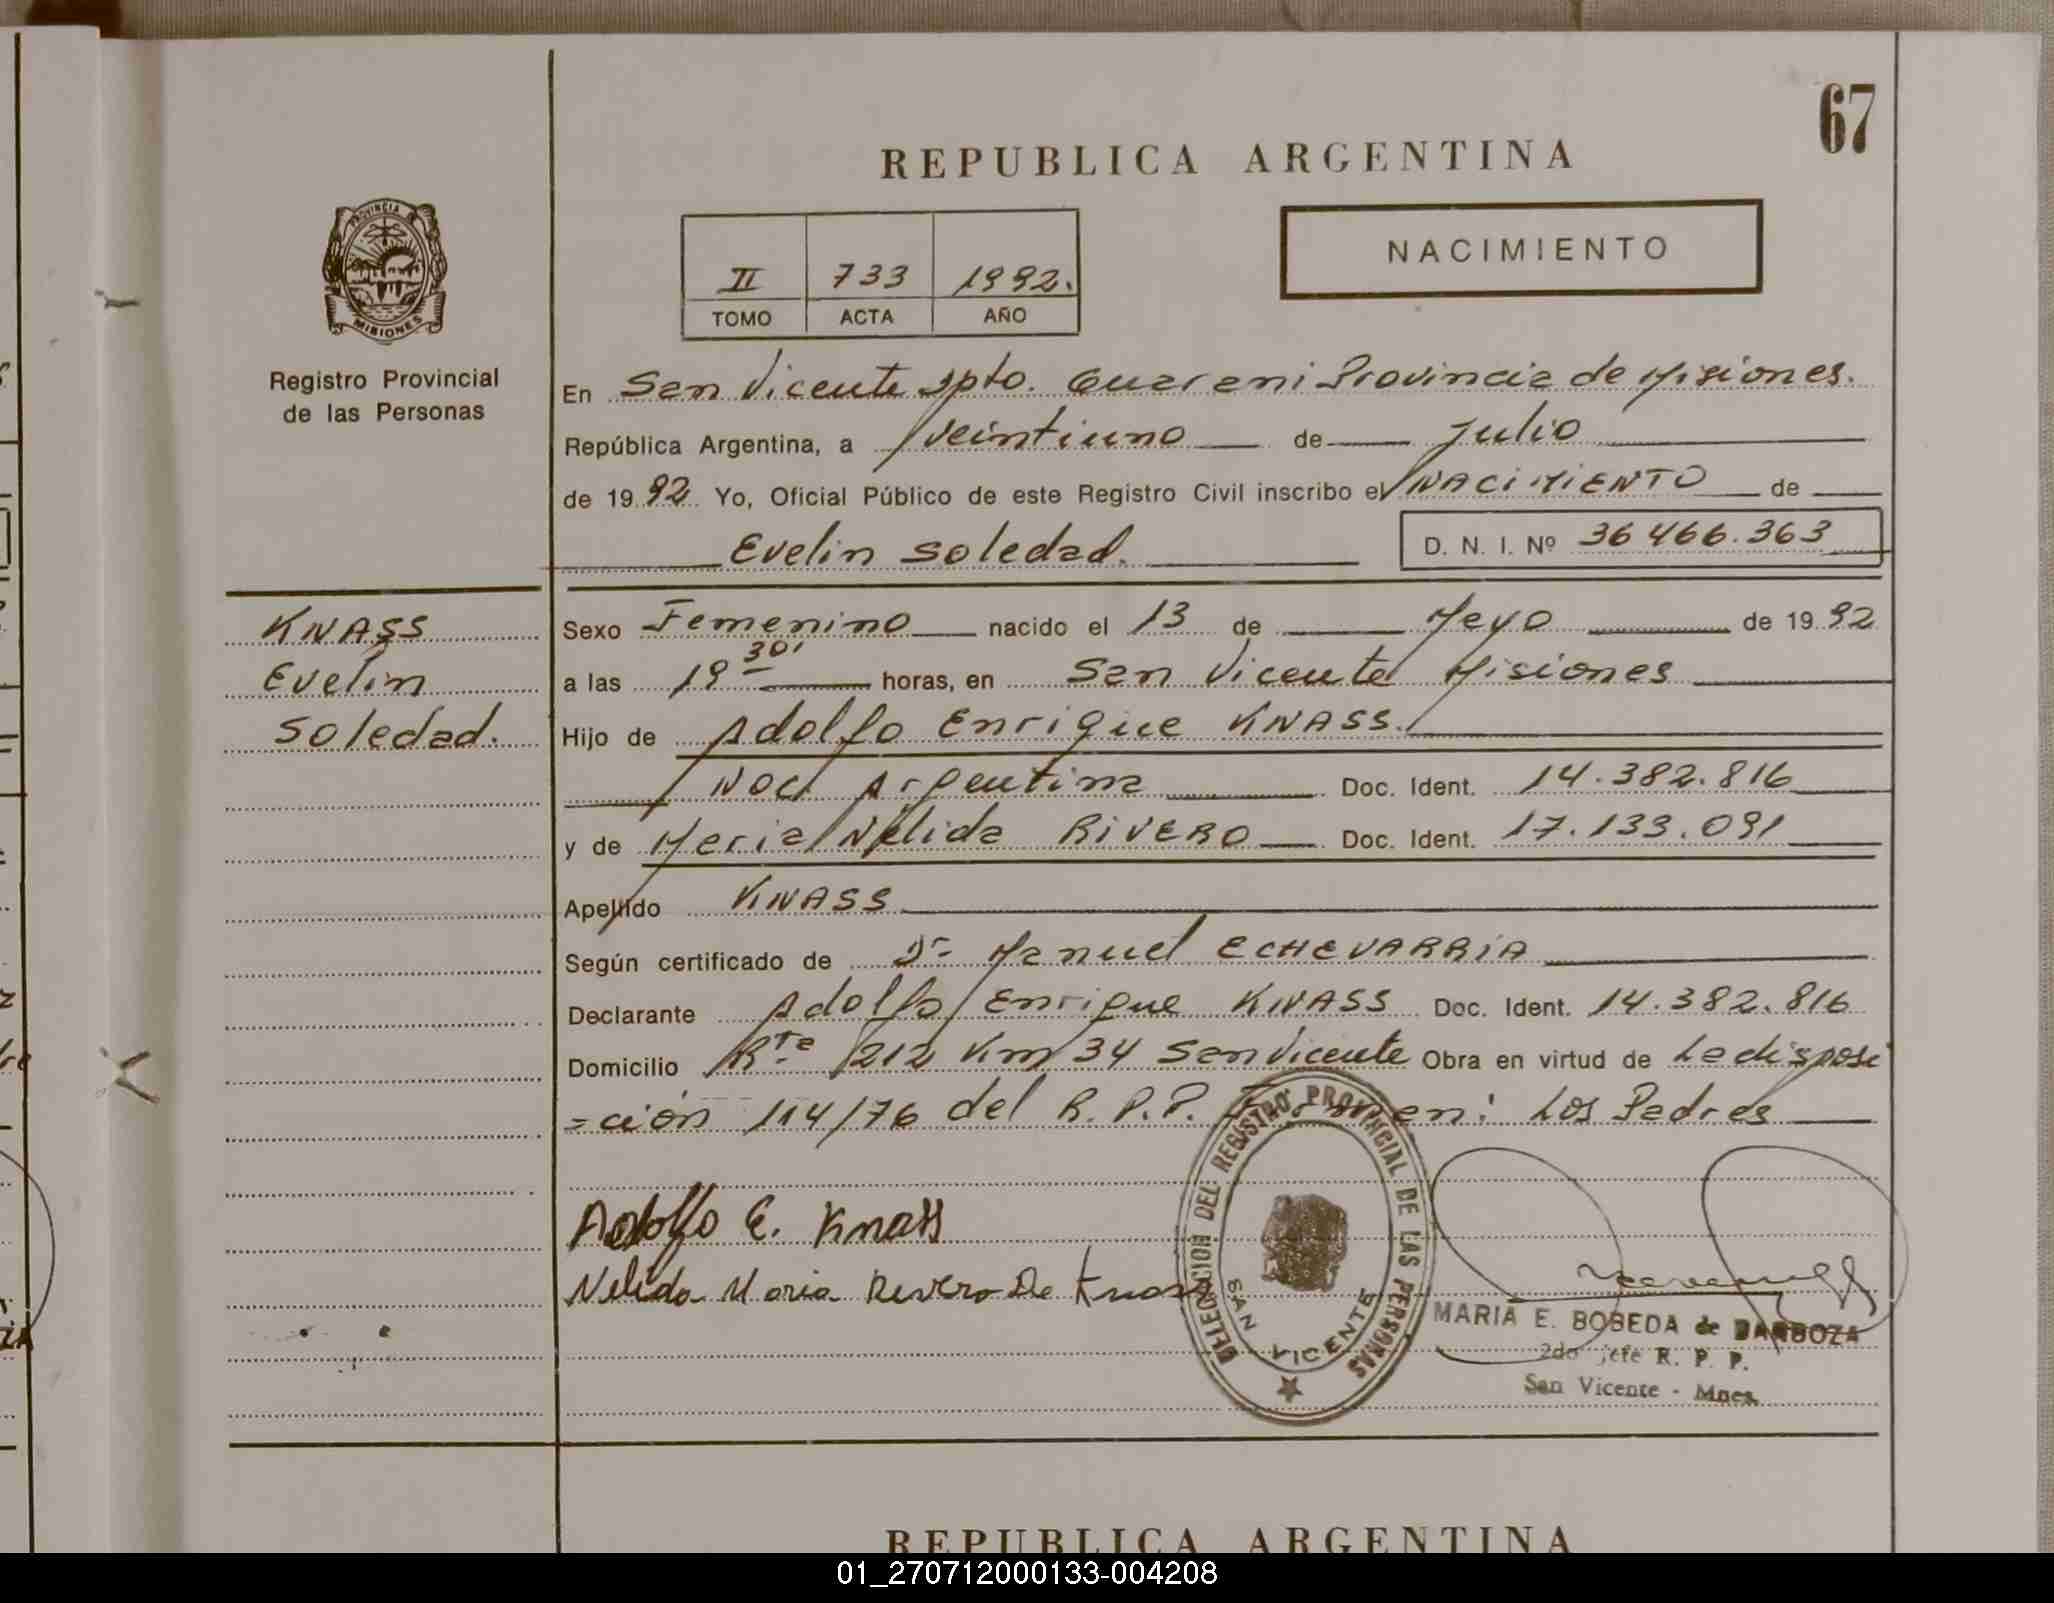 67
REPUBLICA ARGENTINA
NACIMIENTO
II 733 1992.
TOMO ACTA AÑO
PROVINCIA DE
MISIONES
Registro Provincial
de las Personas
En San Vicente Dpto. Guarani Provincia de Misiones.
República Argentina, a Veintiuno de Julio
de 1992 Yo, Oficial Público de este Registro Civil inscribo el NACIMIENTO de
Evelin Soledad.
D. N. I. Nº 36 466.363
KNASS
Evelin
Soledad.
Sexo Femenino nacido el 13 de Mayo de 1992
a las 19 30' horas, en San Vicente Misiones
Hijo de Adolfo Enrique KNASS.
Nac. Argentina Doc. Ident. 14.382.816
y de Maria Nelida RIVERO Doc. Ident. 17.133.091
Apellido KNASS
Según certificado de Dr Manuel ECHEVARRIA
Declarante Adolfo Enrique KNASS Doc. Ident. 14.382.816
Domicilio Rta 212 Km 34 San Vicente Obra en virtud de La disposi
=ción 114/76 del R.P.P. Firman: Los Padres
Adolfo E. Knass
Nelida Maria Rivero De Knass
DELEGACION DEL REGISTRO PROVINCIAL DE LAS PERSONAS
SAN VICENTE
MARIA E. BOBEDA de BARBOZA
2do jefe R. P. P.
San Vicente - Mnes.
REPUBLICA ARGENTINA
01_270712000133-004208